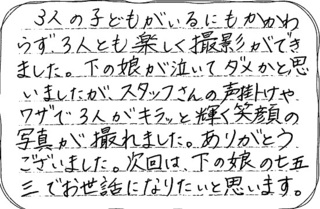 3人の子どもがいるにもかかわ
らず、3人とも楽しく撮影ができ
ました。下の娘が泣いてダメかと思
いましたが、スタッフさんの声掛けや
ワザで3人がキラッと輝く笑顔の
写真が撮れました。ありがとう
ございました。次回は、下の娘の七五
三でお世話になりたいと思います。